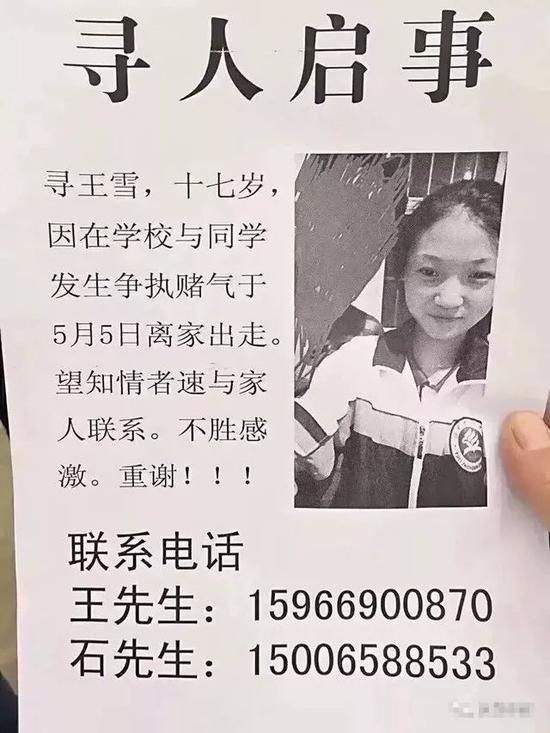 寻人启事
寻王雪，十七岁，
因在学校与同学
发生争执赌气于
5月5日离家出走。
望知情者速与家
人联系。不胜感
激。重谢！！！
联系电话
王先生：15966900870
石先生：15006588533